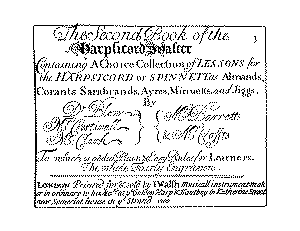 The Second Book of the
Harpsicord Master
Containing A Choice Collection of LESSONS for
the HARPSICORD or SPINNETT as Almands,
Corants Sarabrands, Ayres, Minuetts, and Jiggs,
By
Dr Blow Mr Barrett
Mr Clark & Mr Crofts
To which is added Plain & easy Rules for Learners.
The whole Fairly Engraven
LONDON Printed for & sold by I Walsh Musicall instrument mak
er in ordinary to his the Golden Harp in Katherine Street
near Sommerset house in ye Strand